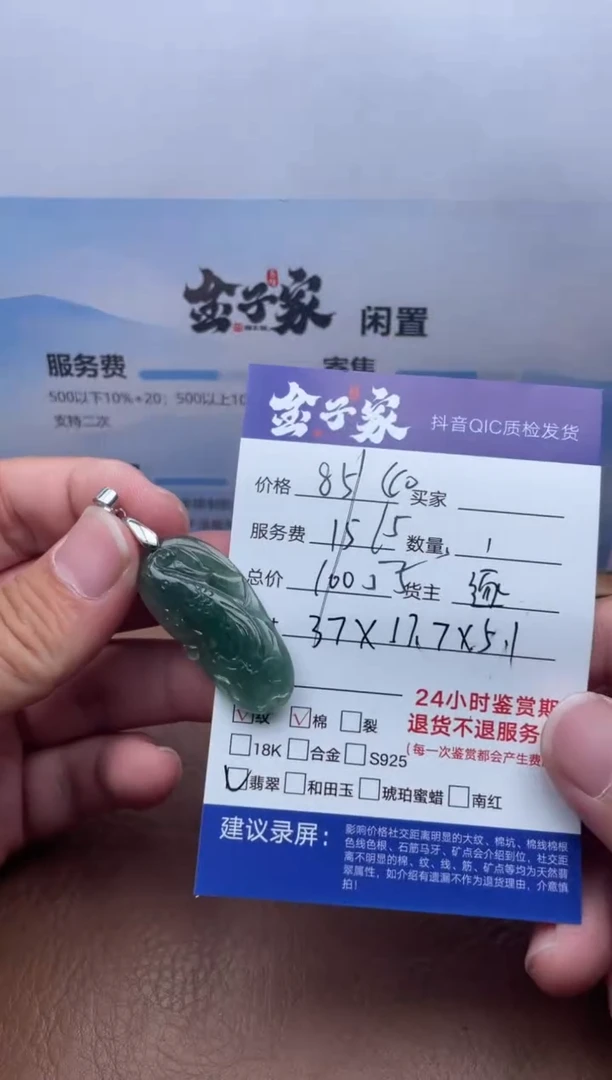 金子家 闲置
服务费
寄售
500以下10%+20；500以上10
支持二次
金子家 抖音QIC质检发货
价格 85 60 买家
服务费 15 15 数量 1
总价 100 75 货主
37×17.7×5.1
24小时鉴赏期
纹 棉 裂
退货不退服务
18K 合金 S925
(每一次鉴赏都会产生费
翡翠 和田玉 琥珀蜜蜡 南红
建议录屏：
影响价格社交距离明显的大纹、棉坑、棉线棉根
色线色根、石筋马牙、矿点会介绍到位，社交距
离不明显的棉、纹、线、筋、矿点等均为天然翡
翠属性，如介绍有遗漏不作为退货理由，介意慎
拍！